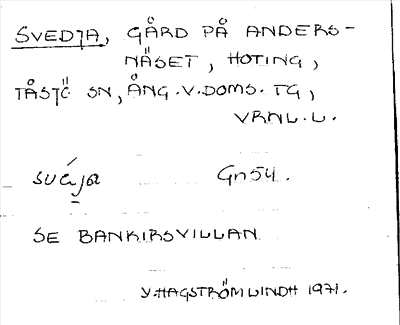 SVEDJA, GÅRD PÅ ANDERS-
NÄSET, HOTING,
TÅSJÖ SN, ÅNG. V. DOMS. TG,
VRNL. L.
Gn 54.
SE BANKIRSVILLAN
Y. HAGSTRÖM LINDH 1971.